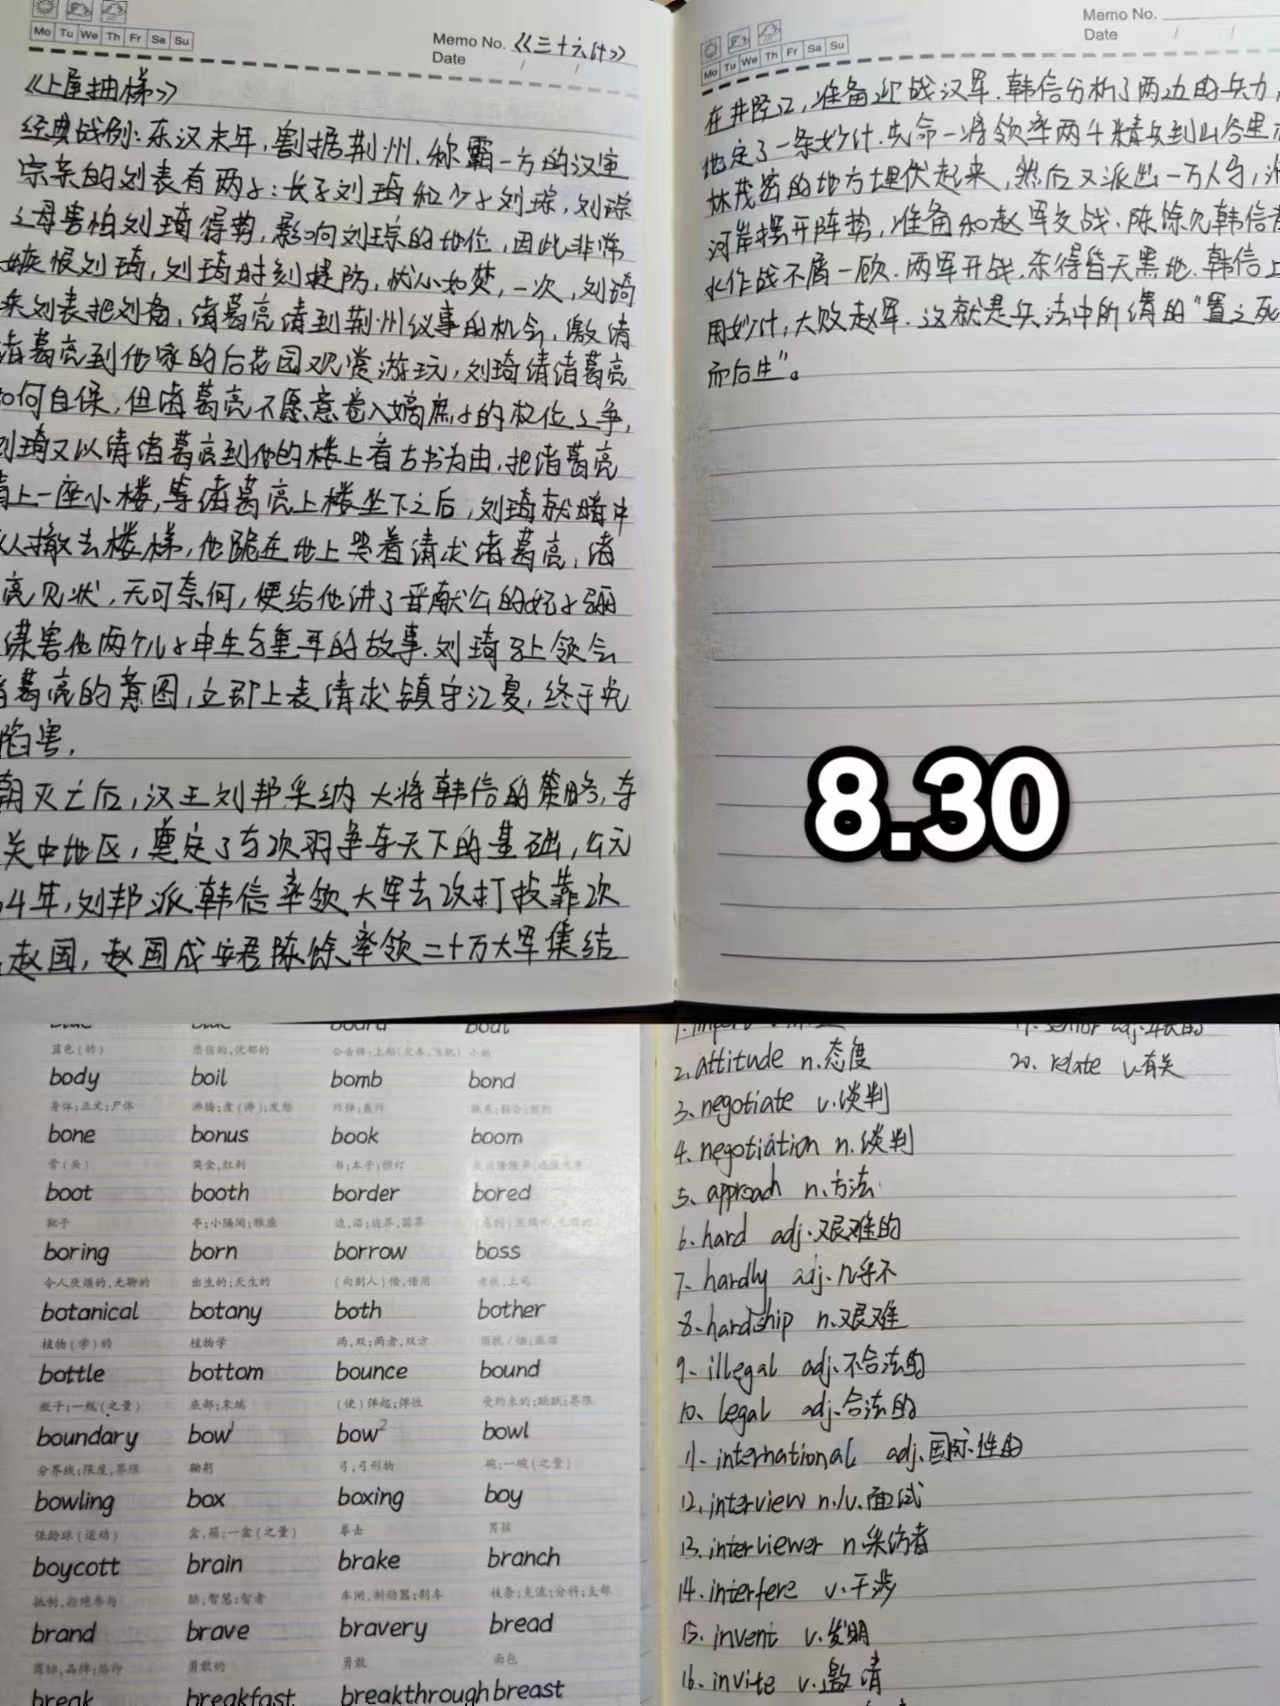 Mo Tu We Th Fr Sa Su
Memo No. 《三十六计》
Date / /
《上屋抽梯》
经典战例：东汉末年，割据荆州，称霸一方的汉室
宗亲的刘表有两子：长子刘琦和少子刘琮，刘琮
之母害怕刘琦得势，影响刘琮的地位，因此非常
嫉恨刘琦，刘琦时刻提防，忧心如焚，一次，刘琦
乘刘表把刘备，诸葛亮请到荆州议事的机会，邀请
诸葛亮到他家的后花园观赏游玩，刘琦请诸葛亮
如何自保，但诸葛亮不愿意卷入嫡庶子的权位之争，
刘琦又以请诸葛亮到他的楼上看古书为由，把诸葛亮
请上一座小楼，等诸葛亮上楼坐下之后，刘琦就暗中
人撤去楼梯，他跪在地上哭着请求诸葛亮，诸
亮见状，无可奈何，便给他讲了晋献公的妃子骊
谋害他两个儿子申生与重耳的故事．刘琦马上领会
葛亮的意图，立即上表请求镇守江夏，终于免
陷害．
朝灭亡后，汉王刘邦采纳大将韩信的策略，夺
关中地区，奠定了与项羽争夺天下的基础，公元
4年，刘邦派韩信率领大军去攻打投靠项
赵国，赵国成安君陈馀率领二十万大军集结
Mo Tu We Th Fr Sa Su
Memo No.
Date / /
在井陉口，准备迎战汉军．韩信分析了两边的兵力，
他定了一条妙计．先命一将领率两千精兵到山谷里
林茂密的地方埋伏起来，然后又派出一万人马，
河岸摆开阵势，准备和赵军交战．陈馀见韩信
水作战不屑一顾．两军开战，杀得昏天黑地．韩信
用妙计，大败赵军．这就是兵法中所谓的“置之死
而后生”。
8.30
蓝色(的) 悲伤的,忧郁的
body boil bomb bond
身体;正文;尸体 沸腾;煮(沸);发怒 炸弹;轰炸
bone bonus book boom
骨(头) 奖金,红利 书;本子;预订
boot booth border bored
靴子 亭;小隔间;雅座 边,沿;边界,国界
boring born borrow boss
令人厌烦的,无聊的 出生的;天生的 (向别人)借,借用 老板,上司
botanical botany both bother
植物(学)的 植物学 两,双;两者,双方
bottle bottom bounce bound
瓶子;一瓶(之量) 底部;末端 (使)弹起;弹性
boundary bow¹ bow² bowl
分界线;限度,界限 鞠躬 弓,弓形物 碗;一碗(之量)
bowling box boxing boy
保龄球(运动) 盒,箱;一盒(之量) 拳击 男孩
boycott brain brake branch
抵制,拒绝参与 脑;智慧;智者 车闸,制动器;刹车 枝条;支流;分科;支部
brand brave bravery bread
商标,品牌;烙印 勇敢的 勇敢 面包
break breakfast breakthrough breast
2. attitude n.态度
3. negotiate v.谈判
4. negotiation n.谈判
5. approach n.方法
6. hard adj.艰难的
7. hardly adj.几乎不
8. hardship n.艰难
9. illegal adj.不合法的
10. legal adj.合法的
11. international adj.国际性的
12. interview n./v.面试
13. interviewer n.采访者
14. interfere v.干涉
15. invent v.发明
16. invite v.邀请
20. relate v.有关